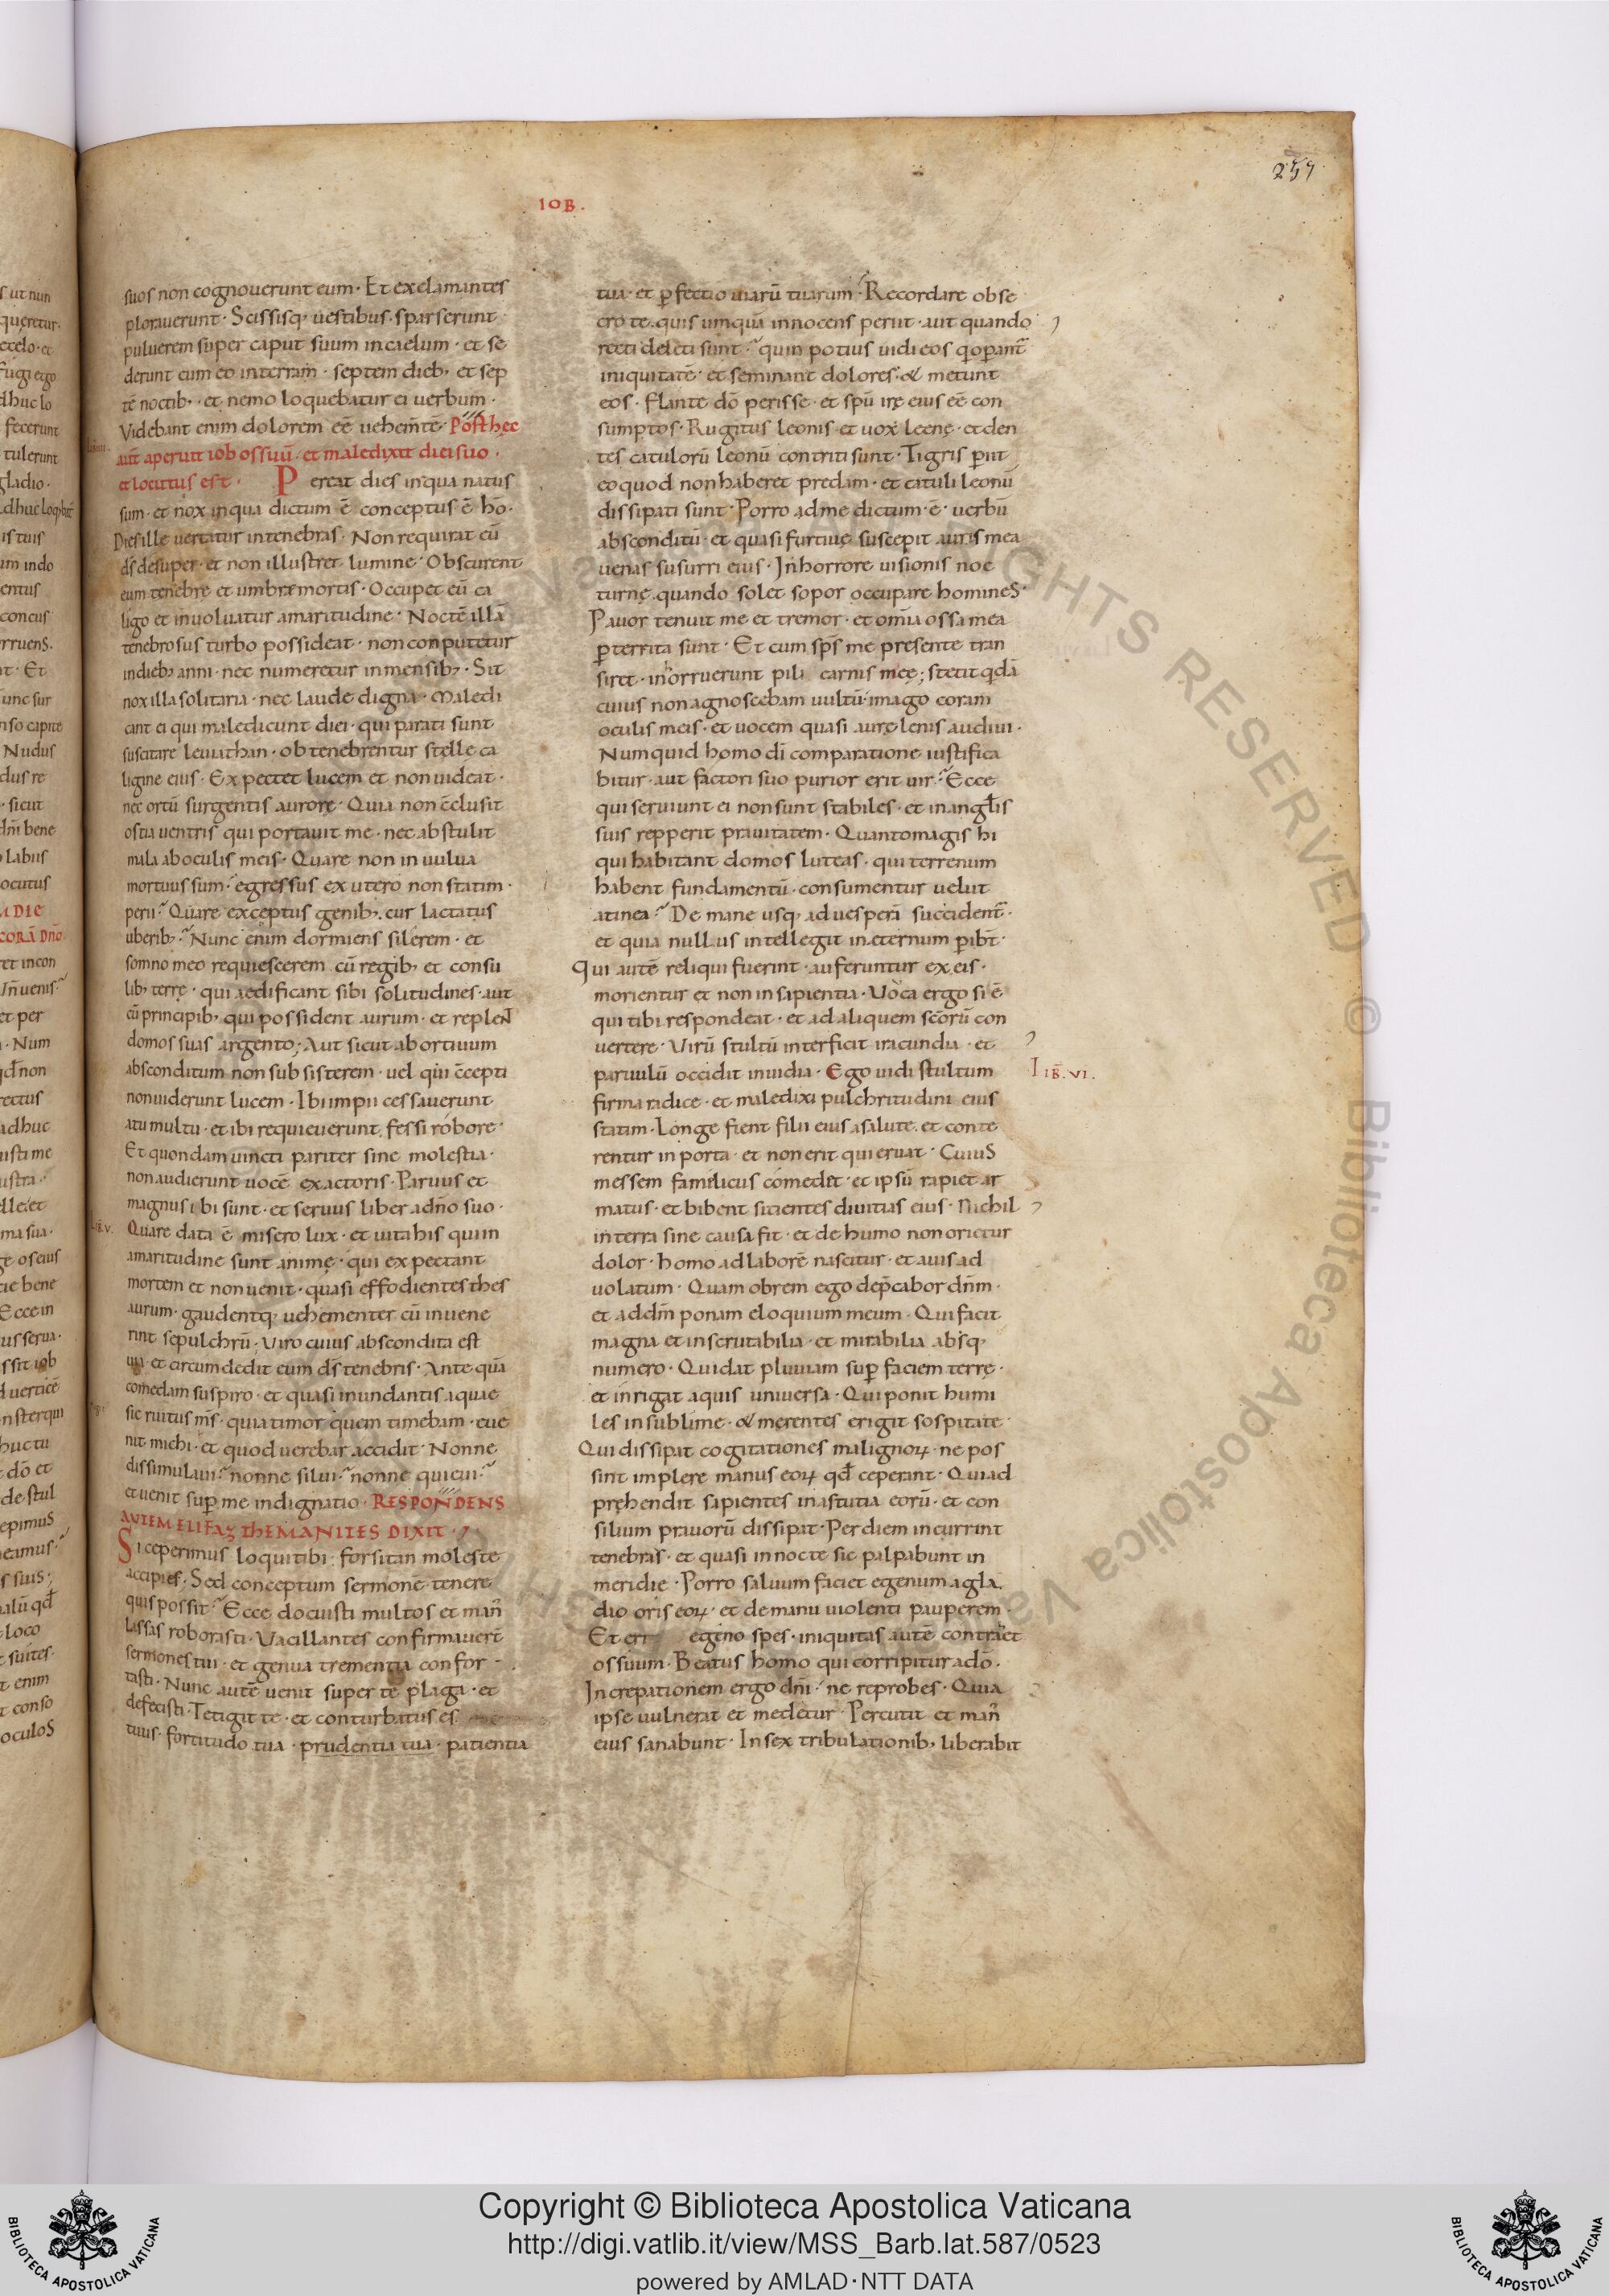 IOB.
257
suos non cognouerunt eum · Et exclamantes
plorauerunt · Scissisq; uestibus · sparserunt
puluerem super caput suum in caelum · et se
derunt cum eo in terram · septem dieb; et sep
tē noctib; · et nemo loquebatur ei uerbum ·
Videbant enim dolorem eē̄ uehem̄tē · Post hęc
aut̄ aperuit iob os suū · et maledixit diei suo ·
et locutus est · Pereat dies in qua natus
sum · et nox in qua dictum ē conceptus ē hō·
Dies ille uertatur in tenebras · Non requirat eū
d̄s desuper · et non illustret lumine · Obscurent
eum tenebrę et umbra mortis · Occupet eū ca
ligo et inuoluatur amaritudine · Noctē illā
tenebrosus turbo possideat · non computetur
in dieb; anni · nec numeretur in mensib; · Sit
nox illa solitaria · nec laude digna · Maledi
cant ei qui maledicunt diei · qui parati sunt
suscitare leuiathan · obtenebrentur stelle ca
ligine eius · Expectet lucem et non uideat ·
nec ortū surgentis aurorę · Quia non c̄clusit
ostia uentris qui portauit me · nec abstulit
mala ab oculis meis · Quare non in uulua
mortuus sum · egressus ex utero non statim ·
perii · Quare exceptus genib; · cur lactatus
uberib; · Nunc enim dormiens silerem · et
somno meo requiescerem cū regib; et consu
lib; terrę · qui aedificant sibi solitudines · aut
cū principib; qui possident aurum · et replent
domos suas argento; Aut sicut abortiuum
absconditum non subsisterem · uel qui c̄cepti
non uiderunt lucem · Ibi impii cessauerunt
a tumultu · et ibi requieuerunt fessi robore ·
Et quondam uincti pariter sine molestia ·
non audierunt uocē exactoris · Paruus et
magnus ibi sunt · et seruus liber a dn̄o suo ·
Lib. v.
Quare data ē misero lux · et uita his qui in
amaritudine sunt animę · qui expectant
mortem et non uenit · quasi effodientes thes
aurum · gaudentq; uehementer cū inuene
rint sepulchrū; Uiro cuius abscondita est
uia et circumdedit eum d̄s tenebris · Ante quā
comedam suspiro · et quasi inundantis aquae
sic ruitus m̄s · quia timor quem timebam · eue
nit michi · et quod uerebar accidit · Nonne
dissimulaui · nonne silui · nonne quieui ·
et uenit sup̄ me indignatio · RESPONDENS
AUTEM ELIFAZ THEMANITES DIXIT ·
Si ceperimus loqui tibi · forsitan moleste
accipies · Sed conceptum sermonē tenere
quis possit · Ecce docuisti multos et man̄
lassas roborasti · Vacillantes confirmauer̄
sermones tui · et genua trementia confor-
tasti · Nunc autē uenit super te plaga · et
defecisti · Tetigit te · et conturbatus es
tuus · fortitudo tua · prudentia tua · patientia
tua · et p̄fectio uiarū tuarum · Recordare obse
cro te · quis umquā innocens periit · aut quando
recti deleti sunt · quin potius uidi eos q̇ op̄ant̄
iniquitatē · et seminant dolores · & metunt
eos · flante dō perisse · et sp̄u irę eius eē̄ con
sumptos · Rugitus leonis et uox leenę · et den
tes catulorū leonū contriti sunt · Tigris p̄iit
eo quod non haberet predam · et catuli leonū
dissipati sunt · Porro ad me dictum · ē · uerbū
absconditū · et quasi furtiuę suscepit auris mea
uenas susurri eius · In horrore uisionis noc
turnę · quando solet sopor occupare homines ·
Pauor tenuit me et tremor · et om̄ia ossa mea
p̄territa sunt · Et cum sp̄s me presente tran
siret · inhorruerunt pili carnis meę; stetit qdā
cuius non agnoscebam uultū · imago coram
oculis meis · et uocem quasi aurę lenis audiui ·
Numquid homo dī comparatione iustifica
bitur · aut factori suo purior erit uir · Ecce
qui seruiunt ei non sunt stabiles · et in angl̄is
suis repperit prauitatem · Quanto magis hi
qui habitant domos luteas · qui terrenum
habent fundamentū · consumentur uelut
a tinea · De mane usq; ad uesperā succident̄ ·
et quia nullus intellegit in eternum p̄ibt̄ ·
Qui autē reliqui fuerint · auferuntur ex eis ·
morientur et non in sapientia · Uoca ergo si ē
qui tibi respondeat · et ad aliquem sc̄orū con
uertere · Virū stultū interficit iracundia · et
paruulū occidit inuidia · Ego uidi stultum
Lib̄. VI.
firma radice · et maledixi pulchritudini eius
statim · Longe fient filii eius a salute · et conte
rentur in porta · et non erit qui eruat · Cuius
messem familicus comedit · et ipsū rapiet ar
matus · et bibent sitientes diuitias eius · Nichil
in terra sine causa fit · et de humo non orietur
dolor · homo ad laborē nascitur · et auis ad
uolatum · Quam obrem ego dep̄cabor dn̄m ·
et ad dm̄ ponam eloquium meum · Qui facit
magna et inscrutabilia · et mirabilia absq;
numero · Qui dat pluuiam sup̄ faciem terrę ·
et inrigat aquis uniuersa · Qui ponit humi
les in sublime · & merentes erigit sospitate ·
Qui dissipat cogitationes malignoꝝ · ne pos
sint implere manus eoꝝ qd̄ ceperant · Qui ad
pręhendit sapientes in astutia eorū · et con
silium prauorū dissipat · Per diem incurrint
tenebras · et quasi in nocte sic palpabunt in
meridie · Porro saluum faciet egenum a gla
dio oris eoꝝ · et de manu uiolenti pauperem ·
Et erit egeno spes · iniquitas autē contrahet
os suum · Beatus homo qui corripitur a dō ·
Increpationem ergo dn̄i · ne reprobes · Quia
ipse uulnerat et medetur · Percutit et man̄
eius sanabunt · In sex tribulationib; liberabit
Copyright © Biblioteca Apostolica Vaticana
http://digi.vatlib.it/view/MSS_Barb.lat.587/0523
powered by AMLAD·NTT DATA
BIBLIOTECA APOSTOLICA VATICANA
BIBLIOTECA APOSTOLICA VATICANA